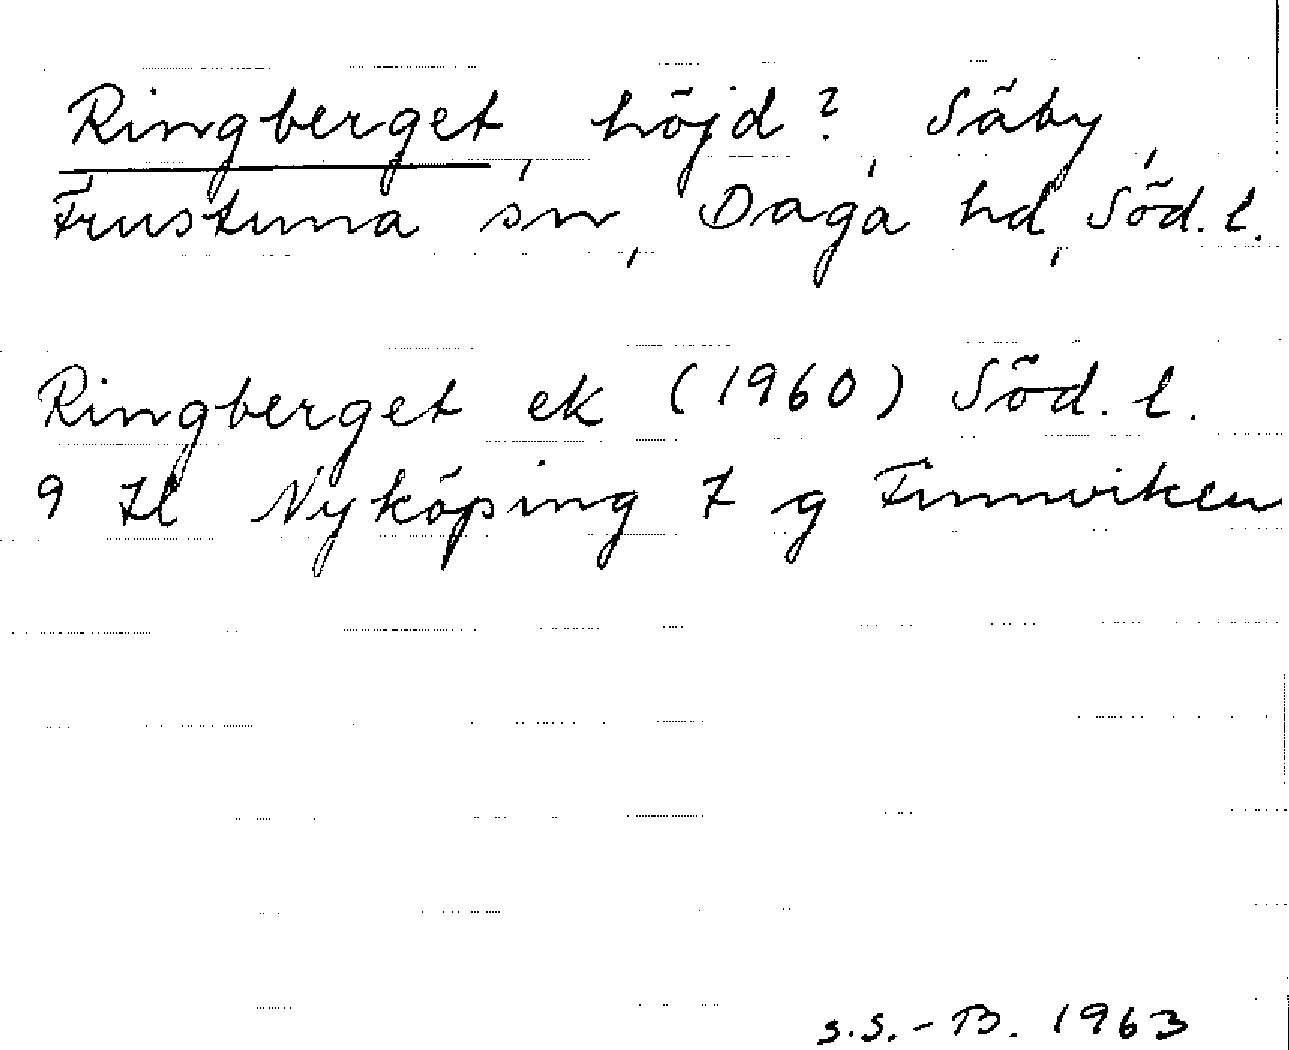 Ringberget, höjd?, Säby,
Frustuna sn, Daga hd, Söd. l.
Ringberget ek (1960) Söd. l.
9 Nyköping 7 g
s.s.-B. 1963